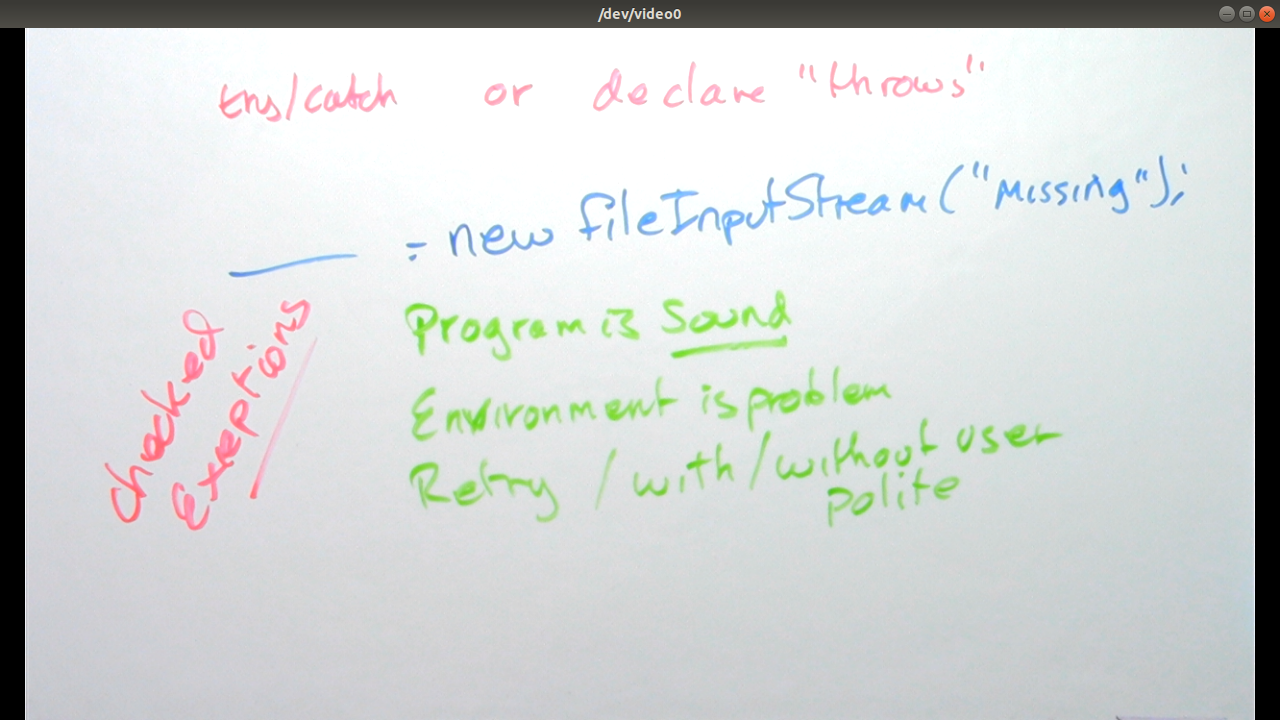 /dev/video0
try/catch or declare "throws"
= new fileInputStream("Missing");
Checked
Exceptions
Program is Sound
Environment is problem
Retry / with / without user
polite